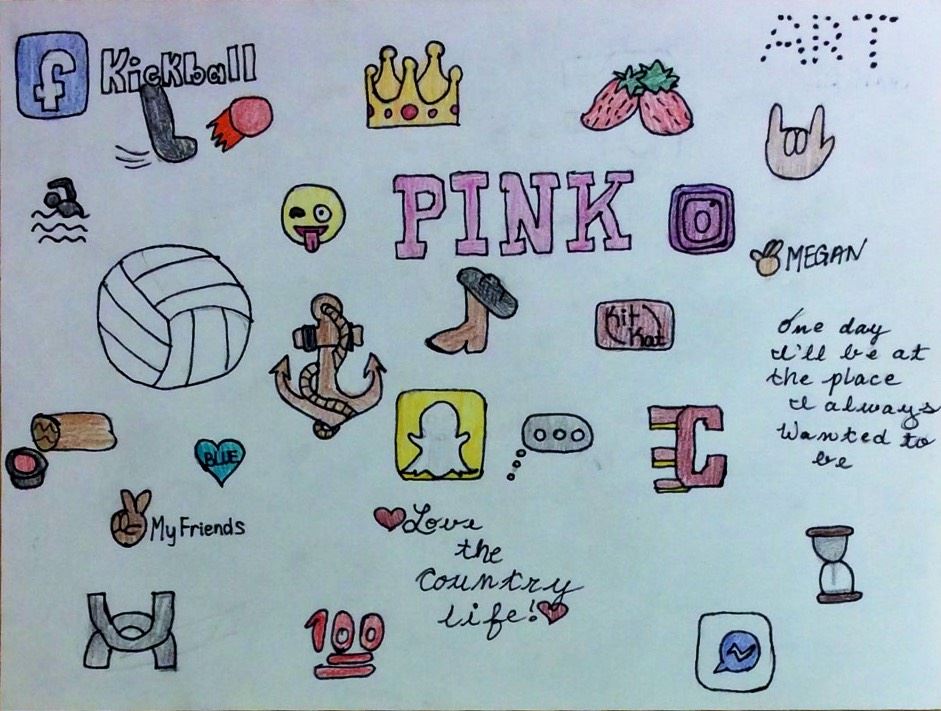 f
Kickball
ART
PINK
MEGAN
Kit
Kat
One day
I'll be at
the place
I always
Wanted to
be
BLUE
EC
My Friends
Love
the
Country
life!
100